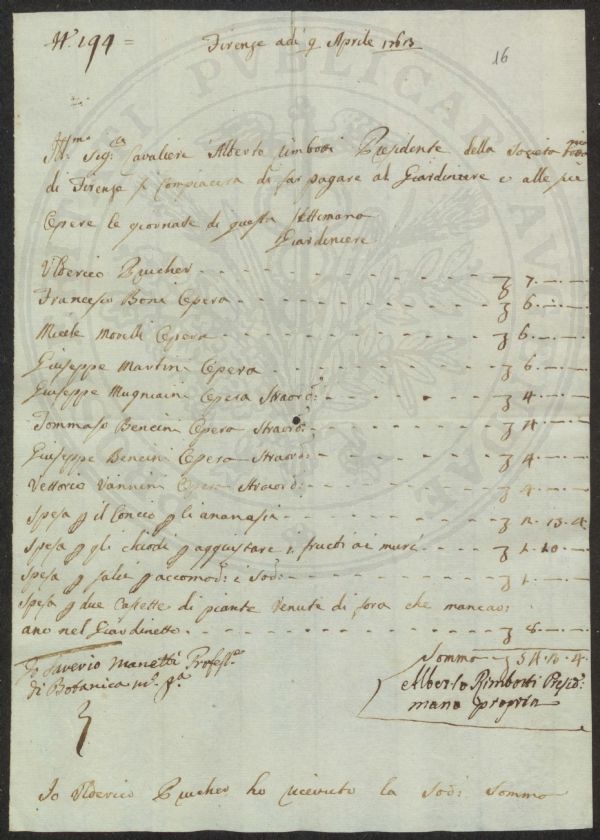 N° 194 =
Firenze adì 9 Aprile 1763
16
Ill:mo Sig:re Cavaliere Alberto Rimbotti Presidente della Società
di Firenze si compiacerà di far pagare al Giardiniere e alle sue
Opere le giornate di questa settimana
Giardiniere
Ulderico Prucher - - - 7. — —
Francesco Boni Opera - - - 6. — —
Micele Morelli Opera - - - 6. — —
Giuseppe Martini Opera - - - 6. — —
Giuseppe Mugniaini Opera Straord:a - - - 4. — —
Tommaso Bencini Opera Straord: - - - 4. — —
Giuseppe Bencini Opera Straord: - - - 4. — —
Vettorio Vannini Opera Straord: - - - 4. — —
Spesa p il Concio p gli ananasia - - - 2. 13. 4
Spesa p gli chiodi p aggiustare i frutti ai muri - - - 1. 10. —
Spesa p salci p accomod: i Sod:i - - - 1. — —
Spesa p due Casette di piante venute di fora che mancav:
ano nel Giardinetto - - - 8. — —
Somma 54. 3. 4
Io Saverio Manetti Profess:e
di Botanica
Alberto Rimbotti Presid:
mano propria
Io Ulderico Prucher ho ricevuto la Sod: Somma